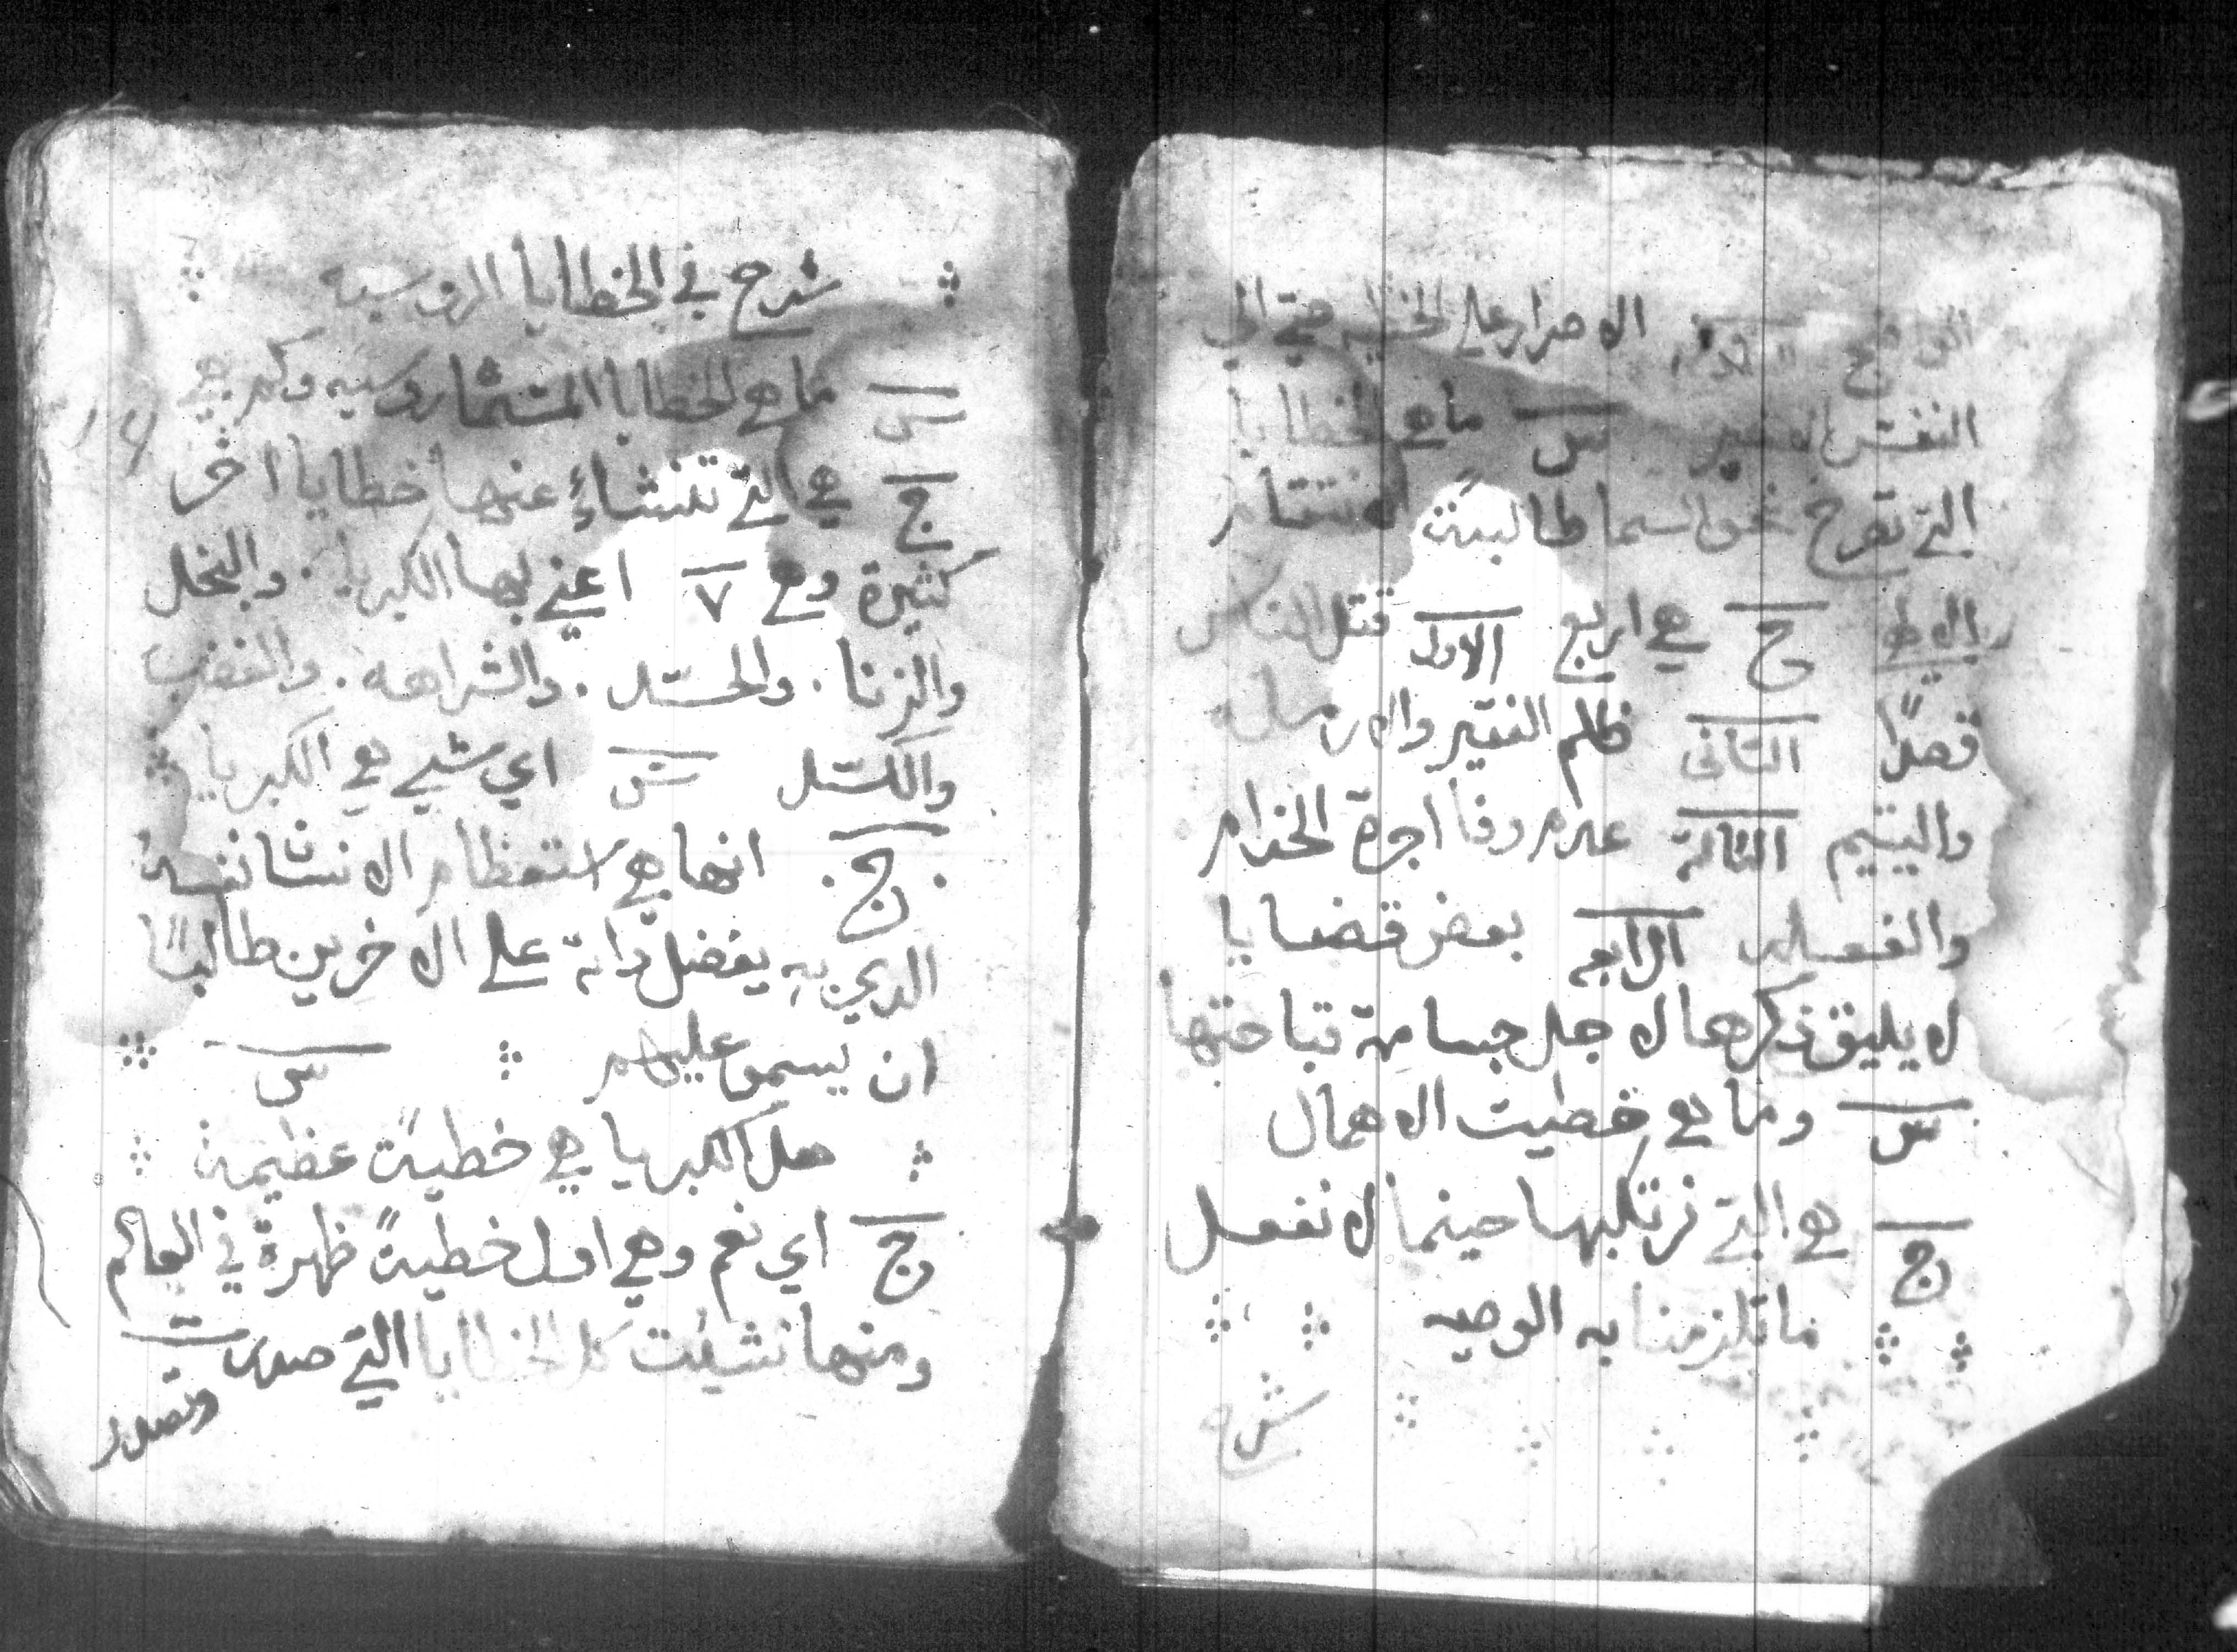 الاصرار على الخطيه حتى الى
النفس الاخير س ما هي الخطايا
التي تصرخ نحو السما طالبةً الانتقام
ج هي اربع الاولى قتل الناس
قصدًا الثانى ظلم الفقير والارمله
واليتيم الثالثة عدم وفا اجرة الخدام
والفعله الرابعه بعض قضايا
لا يليق ذكرها لاجل جسامة قباحتها
س وما هي خطيت الاهمال
ج هي التي نرتكبها حينما لا نفعل
ما تلزمنا به الوصيه
شرح
شرح في الخطايا الروسيه
س ما هي الخطايا وكم هي
ج هي التي تنشاءُ عنها خطايا اخر
كثيرة وهي ٧ اعني بها الكبريا. والبخل
والزنا. والحسد. والشراهه. والغضب
والكسل س اي شي هي الكبريا
ج انها هي استعظام الانسان نفسه
الدي به يفضل داته على الاخرين طالبًا
ان يسمو عليهم س
هل الكبريا هي خطيةً عظيمة
ج اي نعم وهي اول خطيةً ظهرة في العالم
ومنها نشيئت كل الخطايا التي صدرت
وتصدر